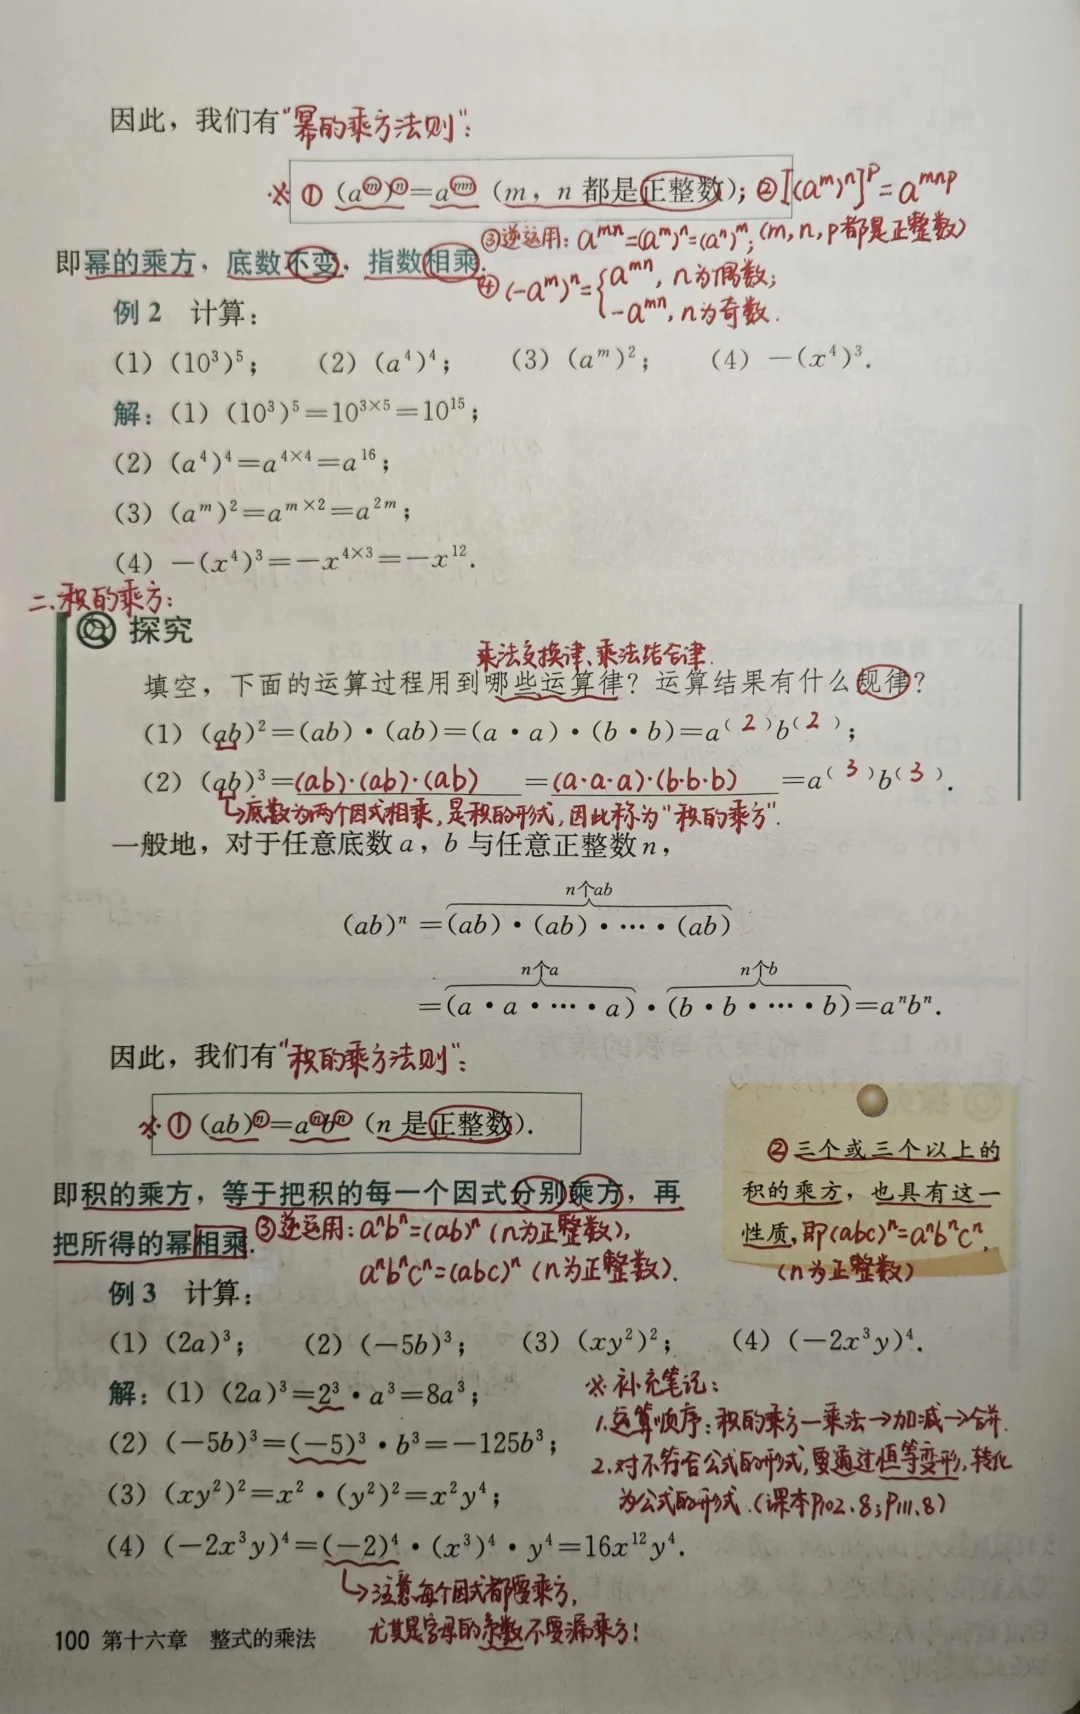 因此，我们有“幂的乘方法则”：
※ ① (aᵐ)ⁿ=aᵐⁿ (m，n 都是正整数)；② [(aᵐ)ⁿ]ᵖ=aᵐⁿᵖ
③逆运用：aᵐⁿ=(aᵐ)ⁿ=(aⁿ)ᵐ；(m,n,p都是正整数)
即幂的乘方，底数不变，指数相乘.
④ (-aᵐ)ⁿ={aᵐⁿ，n为偶数；
-aᵐⁿ，n为奇数.
例2 计算：
(1) (10³)⁵； (2) (a⁴)⁴； (3) (aᵐ)²； (4) －(x⁴)³.
解：(1) (10³)⁵=10³ˣ⁵=10¹⁵；
(2) (a⁴)⁴=a⁴ˣ⁴=a¹⁶；
(3) (aᵐ)²=aᵐˣ²=a²ᵐ；
(4) －(x⁴)³=－x⁴ˣ³=－x¹².
二、积的乘方：
探究
乘法交换律、乘法结合律.
填空，下面的运算过程用到哪些运算律？运算结果有什么规律？
(1) (ab)²=(ab)·(ab)=(a·a)·(b·b)=a⁽ ² ⁾b⁽ ² ⁾；
(2) (ab)³=(ab)·(ab)·(ab) =(a·a·a)·(b·b·b) =a⁽ ³ ⁾b⁽ ³ ⁾.
↳底数为两个因式相乘，是积的形式，因此称为“积的乘方”.
一般地，对于任意底数a，b与任意正整数n，
n个ab
(ab)ⁿ =(ab)·(ab)·…·(ab)
n个a n个b
=(a·a·…·a)·(b·b·…·b)=aⁿbⁿ.
因此，我们有“积的乘方法则”：
※ ① (ab)ⁿ=aⁿbⁿ (n 是正整数).
即积的乘方，等于把积的每一个因式分别乘方，再
把所得的幂相乘.
③逆运用：aⁿbⁿ=(ab)ⁿ (n为正整数)，
aⁿbⁿcⁿ=(abc)ⁿ (n为正整数).
②三个或三个以上的
积的乘方，也具有这一
性质，即(abc)ⁿ=aⁿbⁿcⁿ.
(n为正整数)
例3 计算：
(1) (2a)³； (2) (－5b)³； (3) (xy²)²； (4) (－2x³y)⁴.
解：(1) (2a)³=2³·a³=8a³；
(2) (－5b)³=(－5)³·b³=－125b³；
(3) (xy²)²=x²·(y²)²=x²y⁴；
(4) (－2x³y)⁴=(－2)⁴·(x³)⁴·y⁴=16x¹²y⁴.
※补充笔记：
1.运算顺序：积的乘方—乘法→加减→合并.
2.对不符合公式的形式，要通过恒等变形，转化
为公式的形式.(课本P102.8；P111.8)
↳注意每个因式都要乘方，
尤其是字母的系数不要漏乘方！
100 第十六章 整式的乘法